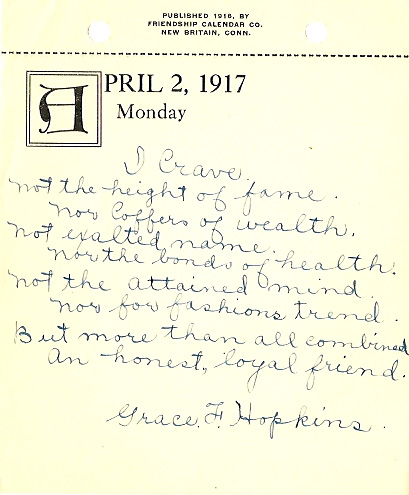 PUBLISHED 1916, BY
FRIENDSHIP CALENDAR CO.
NEW BRITAIN, CONN.
APRIL 2, 1917
Monday
I Crave
not the height of fame.
nor Coffers of wealth.
not exalted name.
nor the bonds of health.
not the attained mind.
nor for fashions trend.
But more than all combined
An honest, loyal friend.
Grace. F. Hopkins.